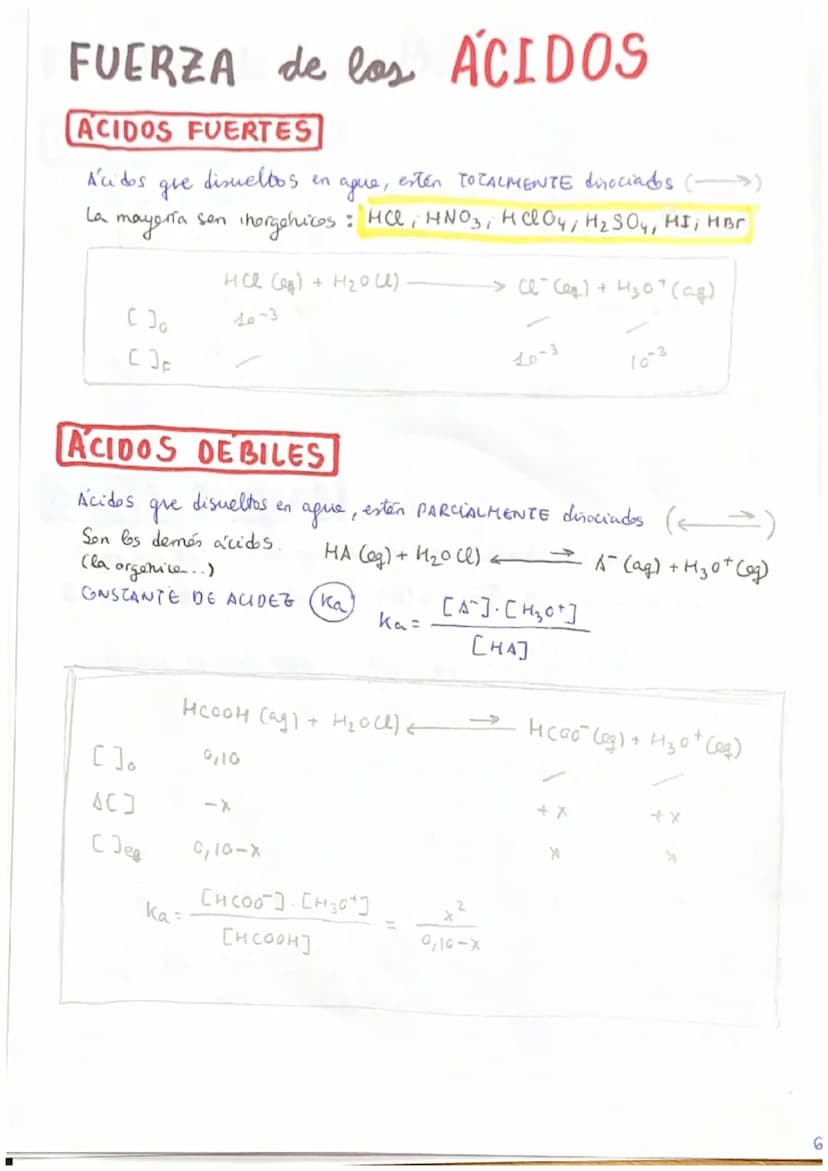 FUERZA de los ÁCIDOS
ÁCIDOS FUERTES
Ácidos que disueltos en agua, están TOTALMENTE disociados (⟶)
La mayoría son inorgánicos: HCl, HNO₃, HClO₄, H₂SO₄, HI, HBr
HCl (aq) + H₂O (l) ⟶ Cl⁻ (aq) + H₃O⁺ (aq)
[ ]₀ 10⁻³ — —
[ ]F — 10⁻³ 10⁻³
ÁCIDOS DÉBILES
Ácidos que disueltos en agua, están PARCIALMENTE disociados (⇄)
Son los demás ácidos.
(la orgánica...)
HA (aq) + H₂O (l) ⇄ A⁻ (aq) + H₃O⁺ (aq)
CONSTANTE DE ACIDEZ (Ka)
Ka = [A⁻]·[H₃O⁺] / [HA]
HCOOH (aq) + H₂O (l) ⇄ HCOO⁻ (aq) + H₃O⁺ (aq)
[ ]₀ 0,10 — —
Δ[ ] -x +x +x
[ ]eq 0,10-x x x
Ka = [HCOO⁻]·[H₃O⁺] / [HCOOH] = x² / 0,10-x
6